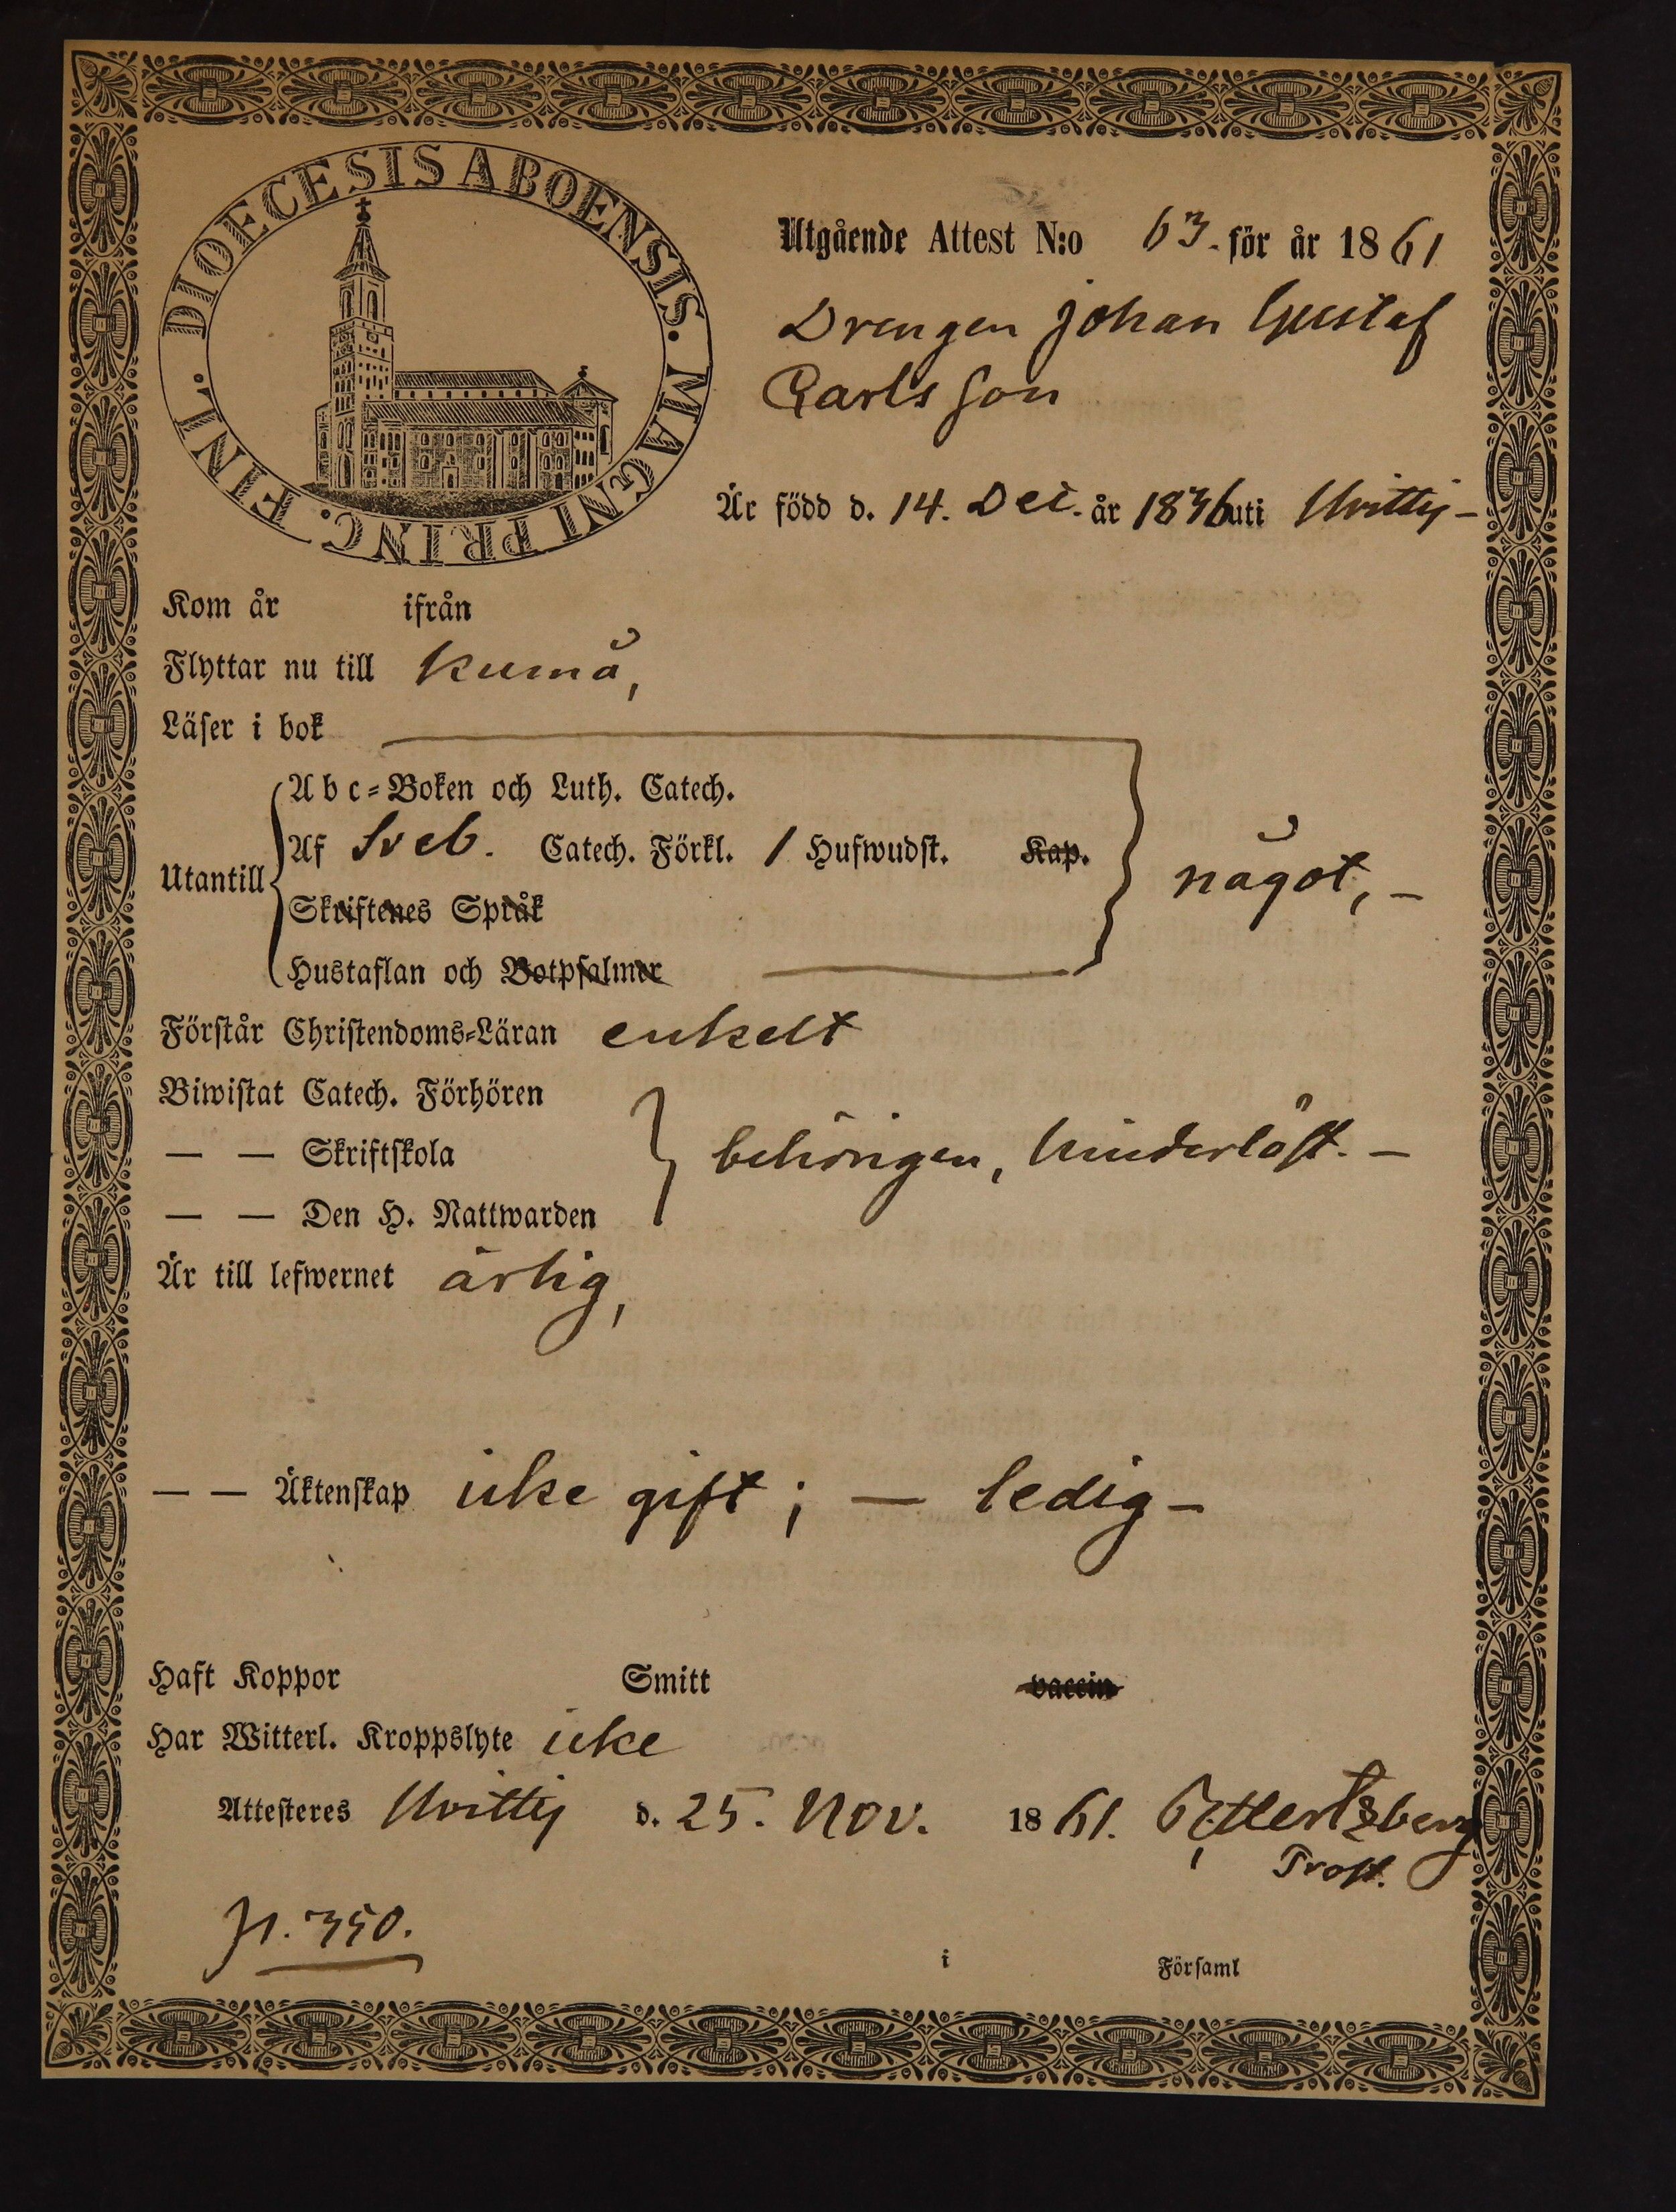 DIOECESIS ABOENSIS. MAGNI PRINC. FINL.
Utgående Attest N:o 63. för år 1861
Drengen Johan Gustaf
Carlsson
Är född d. 14. Dec. år 1836 uti Hvittis –
Kom år ifrån
Flyttar nu till Kumå,
Läser i bok
Utantill
Abc-Boken och Luth. Catech.
Af Sveb. Catech. Förkl. 1 Hufwudst. Kap.
Skriftenes Språk
Hustaflan och Botpsalmer
något, –
Förstår Christendoms-Läran enkelt
Biwistat Catech. Förhören
— — Skriftskola
— — Den H. Nattwarden
behörigen, hinderlöst. –
Är till lefwernet ärlig,
— — Äktenskap icke gift; — ledig –
Haft Koppor Smitt vaccin
Har Witterl. Kroppslyte icke
Attesteres Hvittis d. 25. Nov. 1861.
Prost.
p. 350.
i Församl